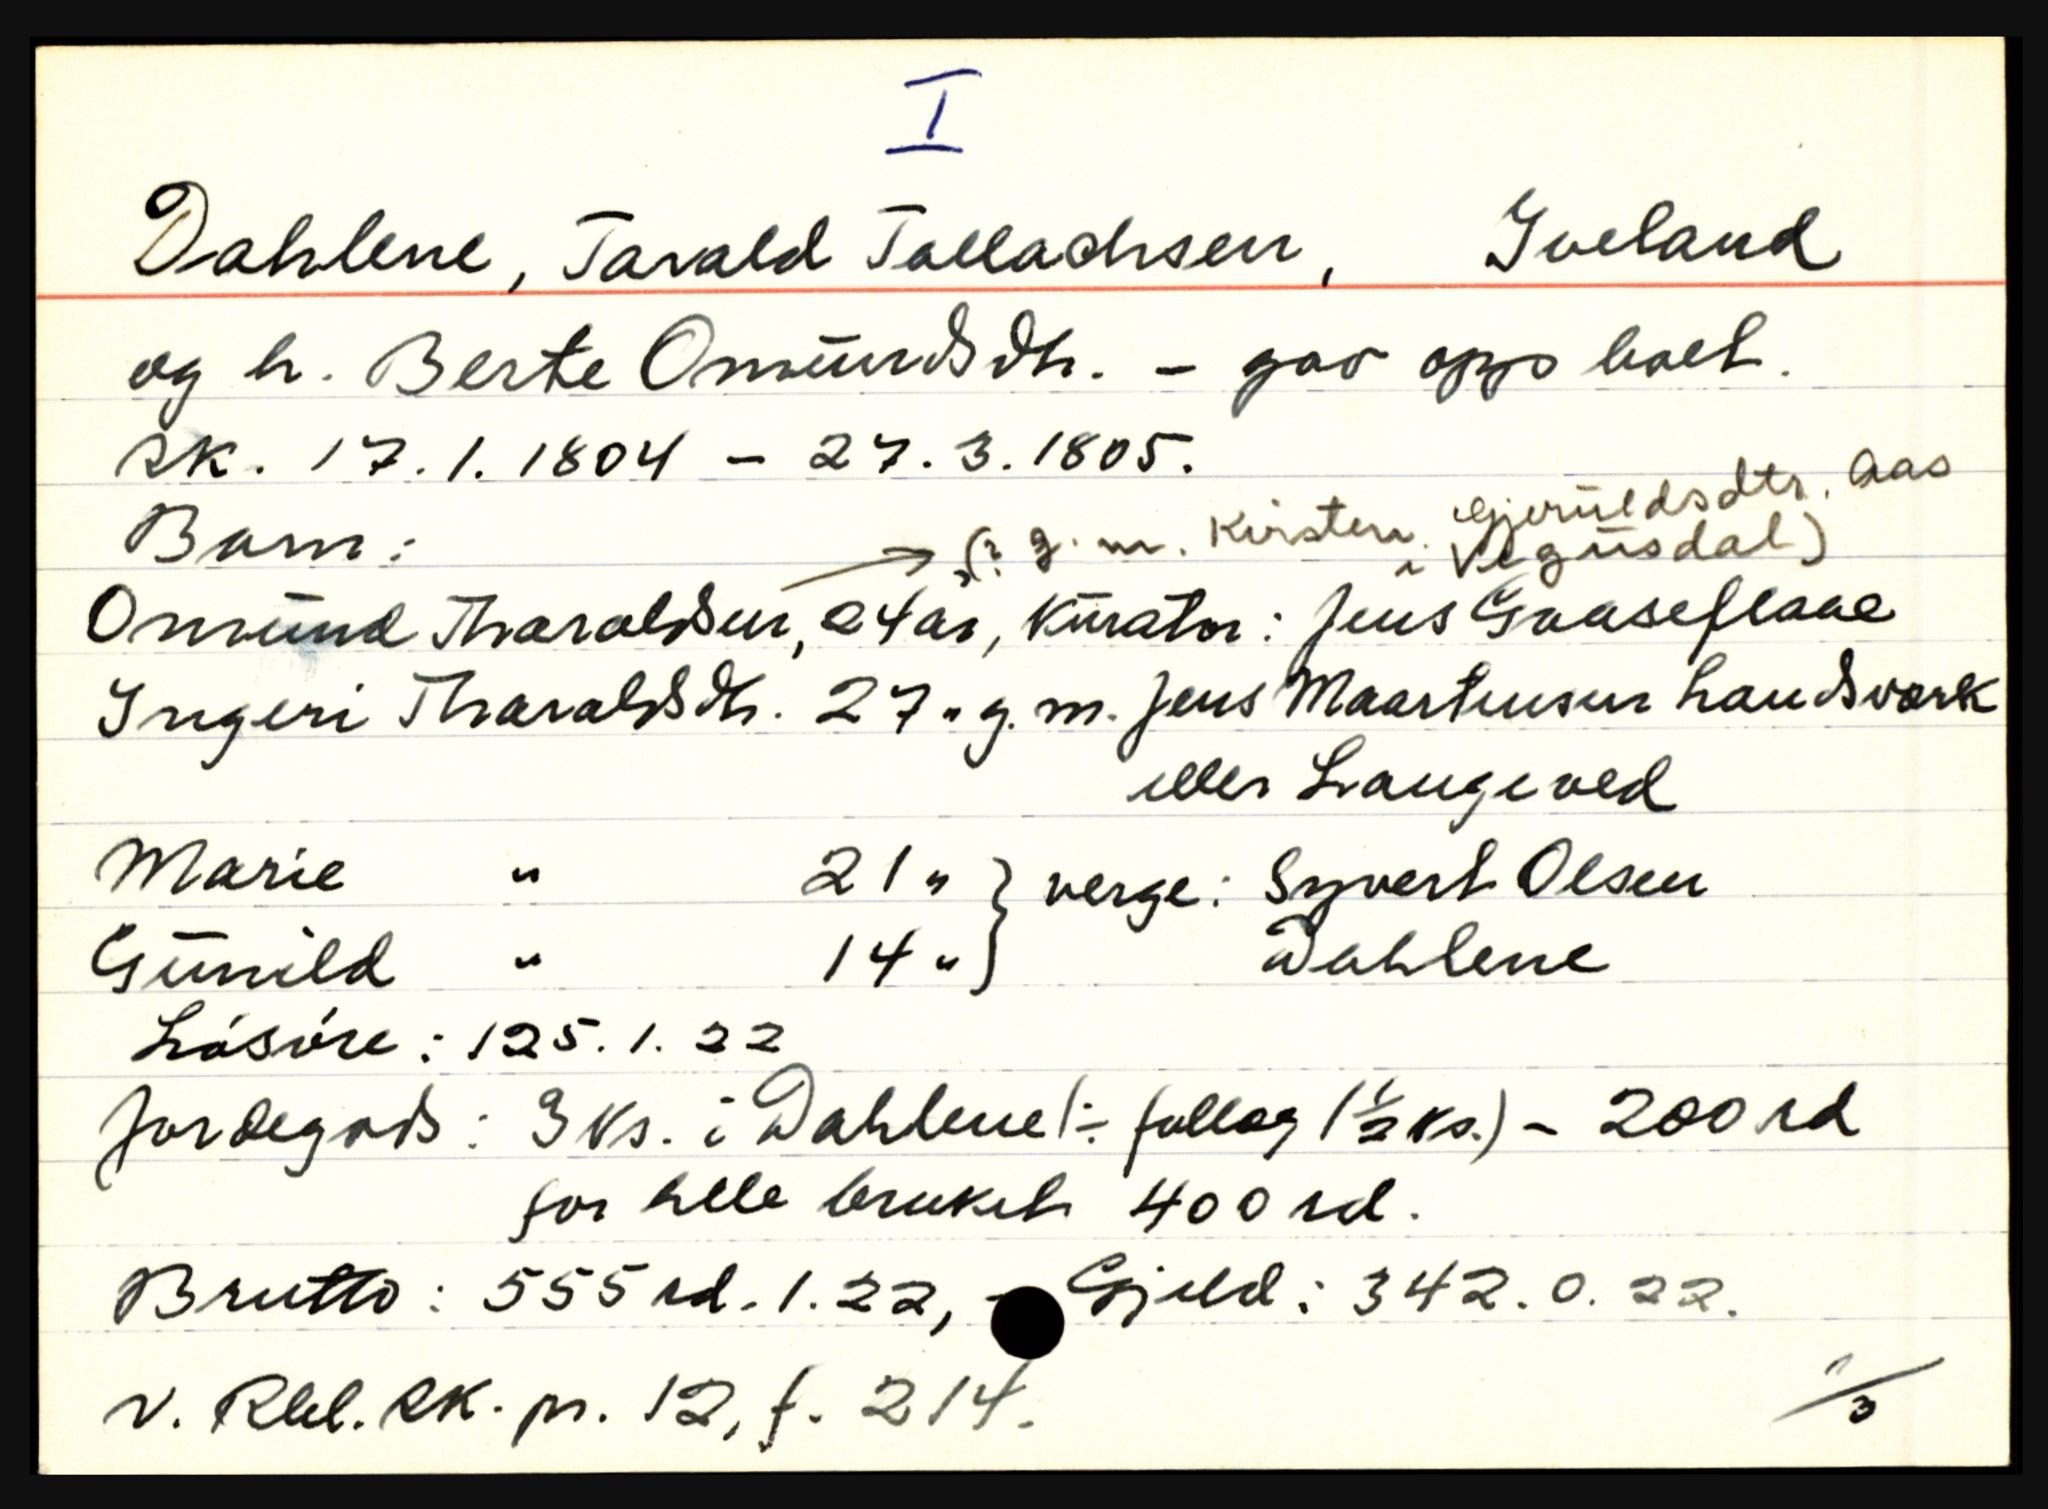 I
Dahlene, Tarald Tallachsen, Iveland
og h. Berte Omundsdtr. - gav opp boet.
sk. 17.1.1804 - 27.3.1805.
Barn:
→ (? g. m. Kirsten Gjeruldsdtr. Aas
i Vegusdal)
Omund Tharaldsen, 24 år, kurator: Jens Gaaseflaae
Ingeri Tharaldsdtr. 27 " g. m. Jens Maartensen Landsværk
eller Langeved
Marie " 21 " } verge: Syvert Olsen
Gunild " 14 " } Dahlene
Lösöre: 125.1.22
Jordegods: 3 ks. i Dahlene (÷ follog 1 1/2 ks.) - 200 rd
for hele bruket 400 rd.
Brutto: 555 rd. 1.22, - Gjeld: 342.0.22.
v. Rbl. sk. pr. 12, f. 214.
1/3